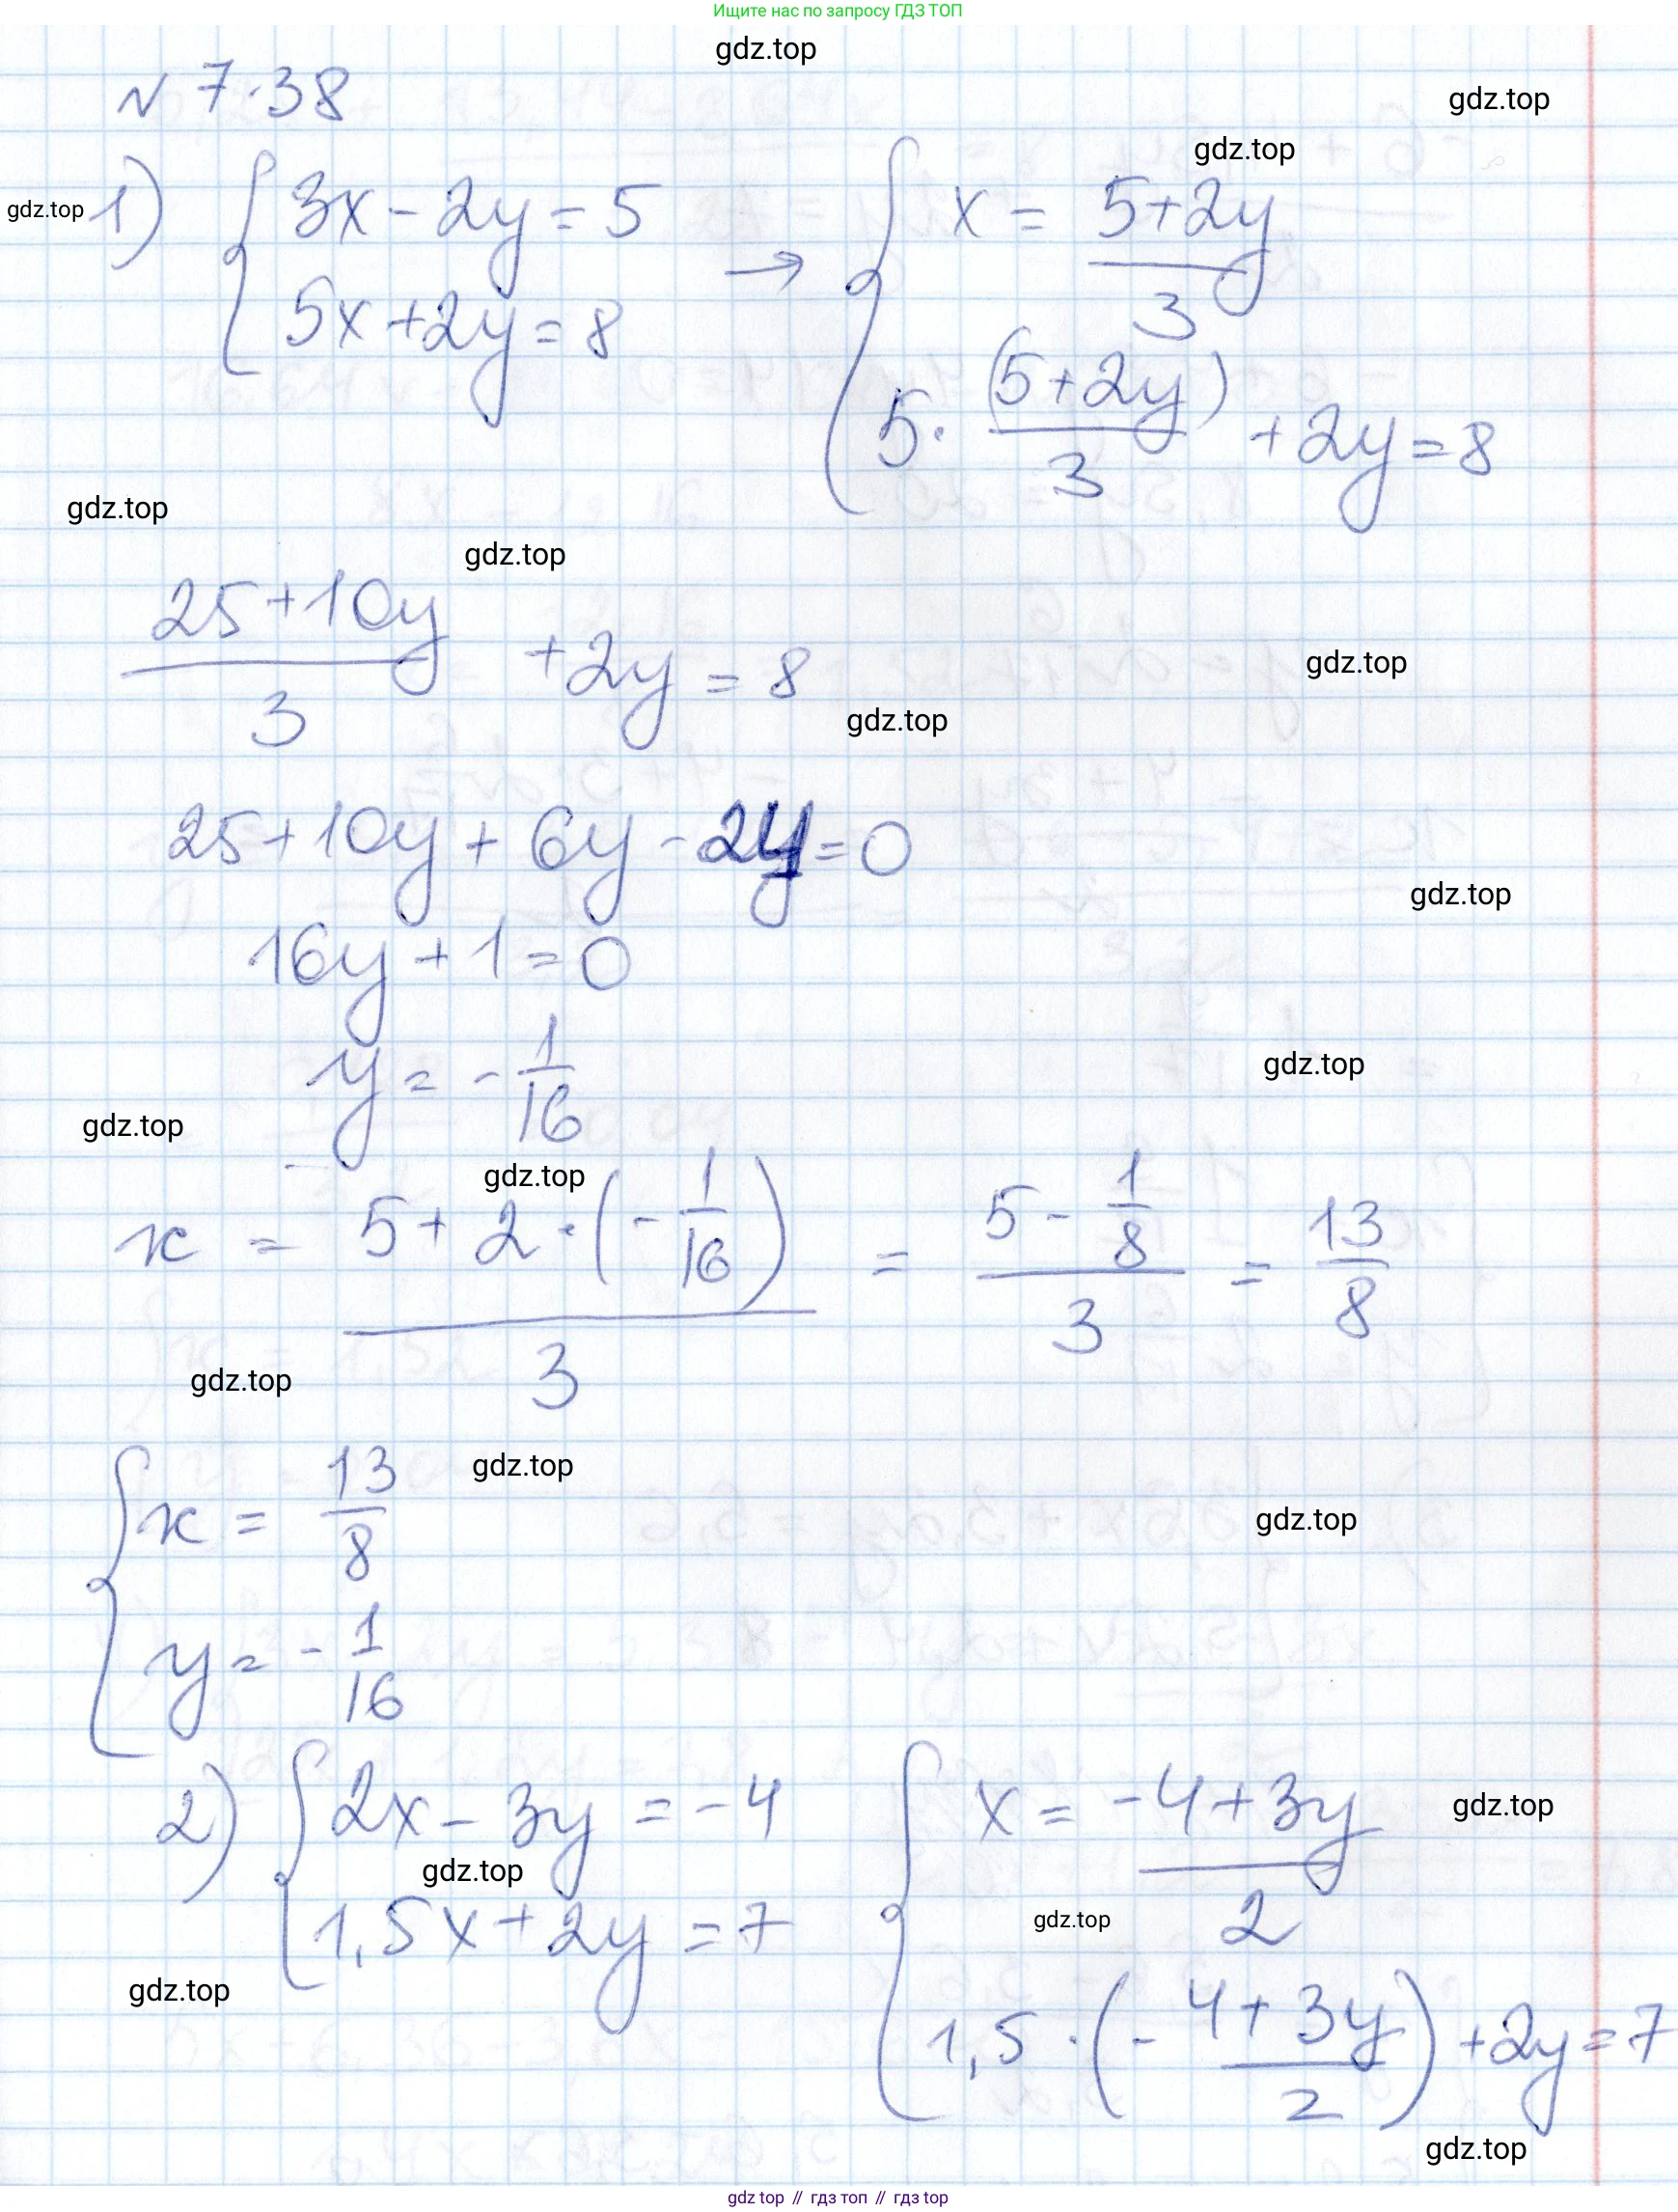 Ищите нас по запросу ГДЗ ТОП
gdz.top
№ 7.38
gdz.top
gdz.top
gdz.top
1) { 3x - 2y = 5 → { x = (5+2y)/3
5x + 2y = 8
5 · (5+2y)/3 + 2y = 8
gdz.top
gdz.top
(25+10y)/3 + 2y = 8
gdz.top
gdz.top
25 + 10y + 6y - 24 = 0
gdz.top
16y + 1 = 0
y = - 1/16
gdz.top
gdz.top
gdz.top
x = (5 + 2 · (- 1/16))/3 = (5 - 1/8)/3 = 13/8
gdz.top
gdz.top
{ x = 13/8
gdz.top
y = - 1/16
2) { 2x - 3y = -4 { x = (-4+3y)/2
gdz.top
gdz.top
1,5x + 2y = 7
gdz.top
gdz.top
1,5 · (-4+3y)/2) + 2y = 7
gdz.top
gdz top // гдз топ // гдз top